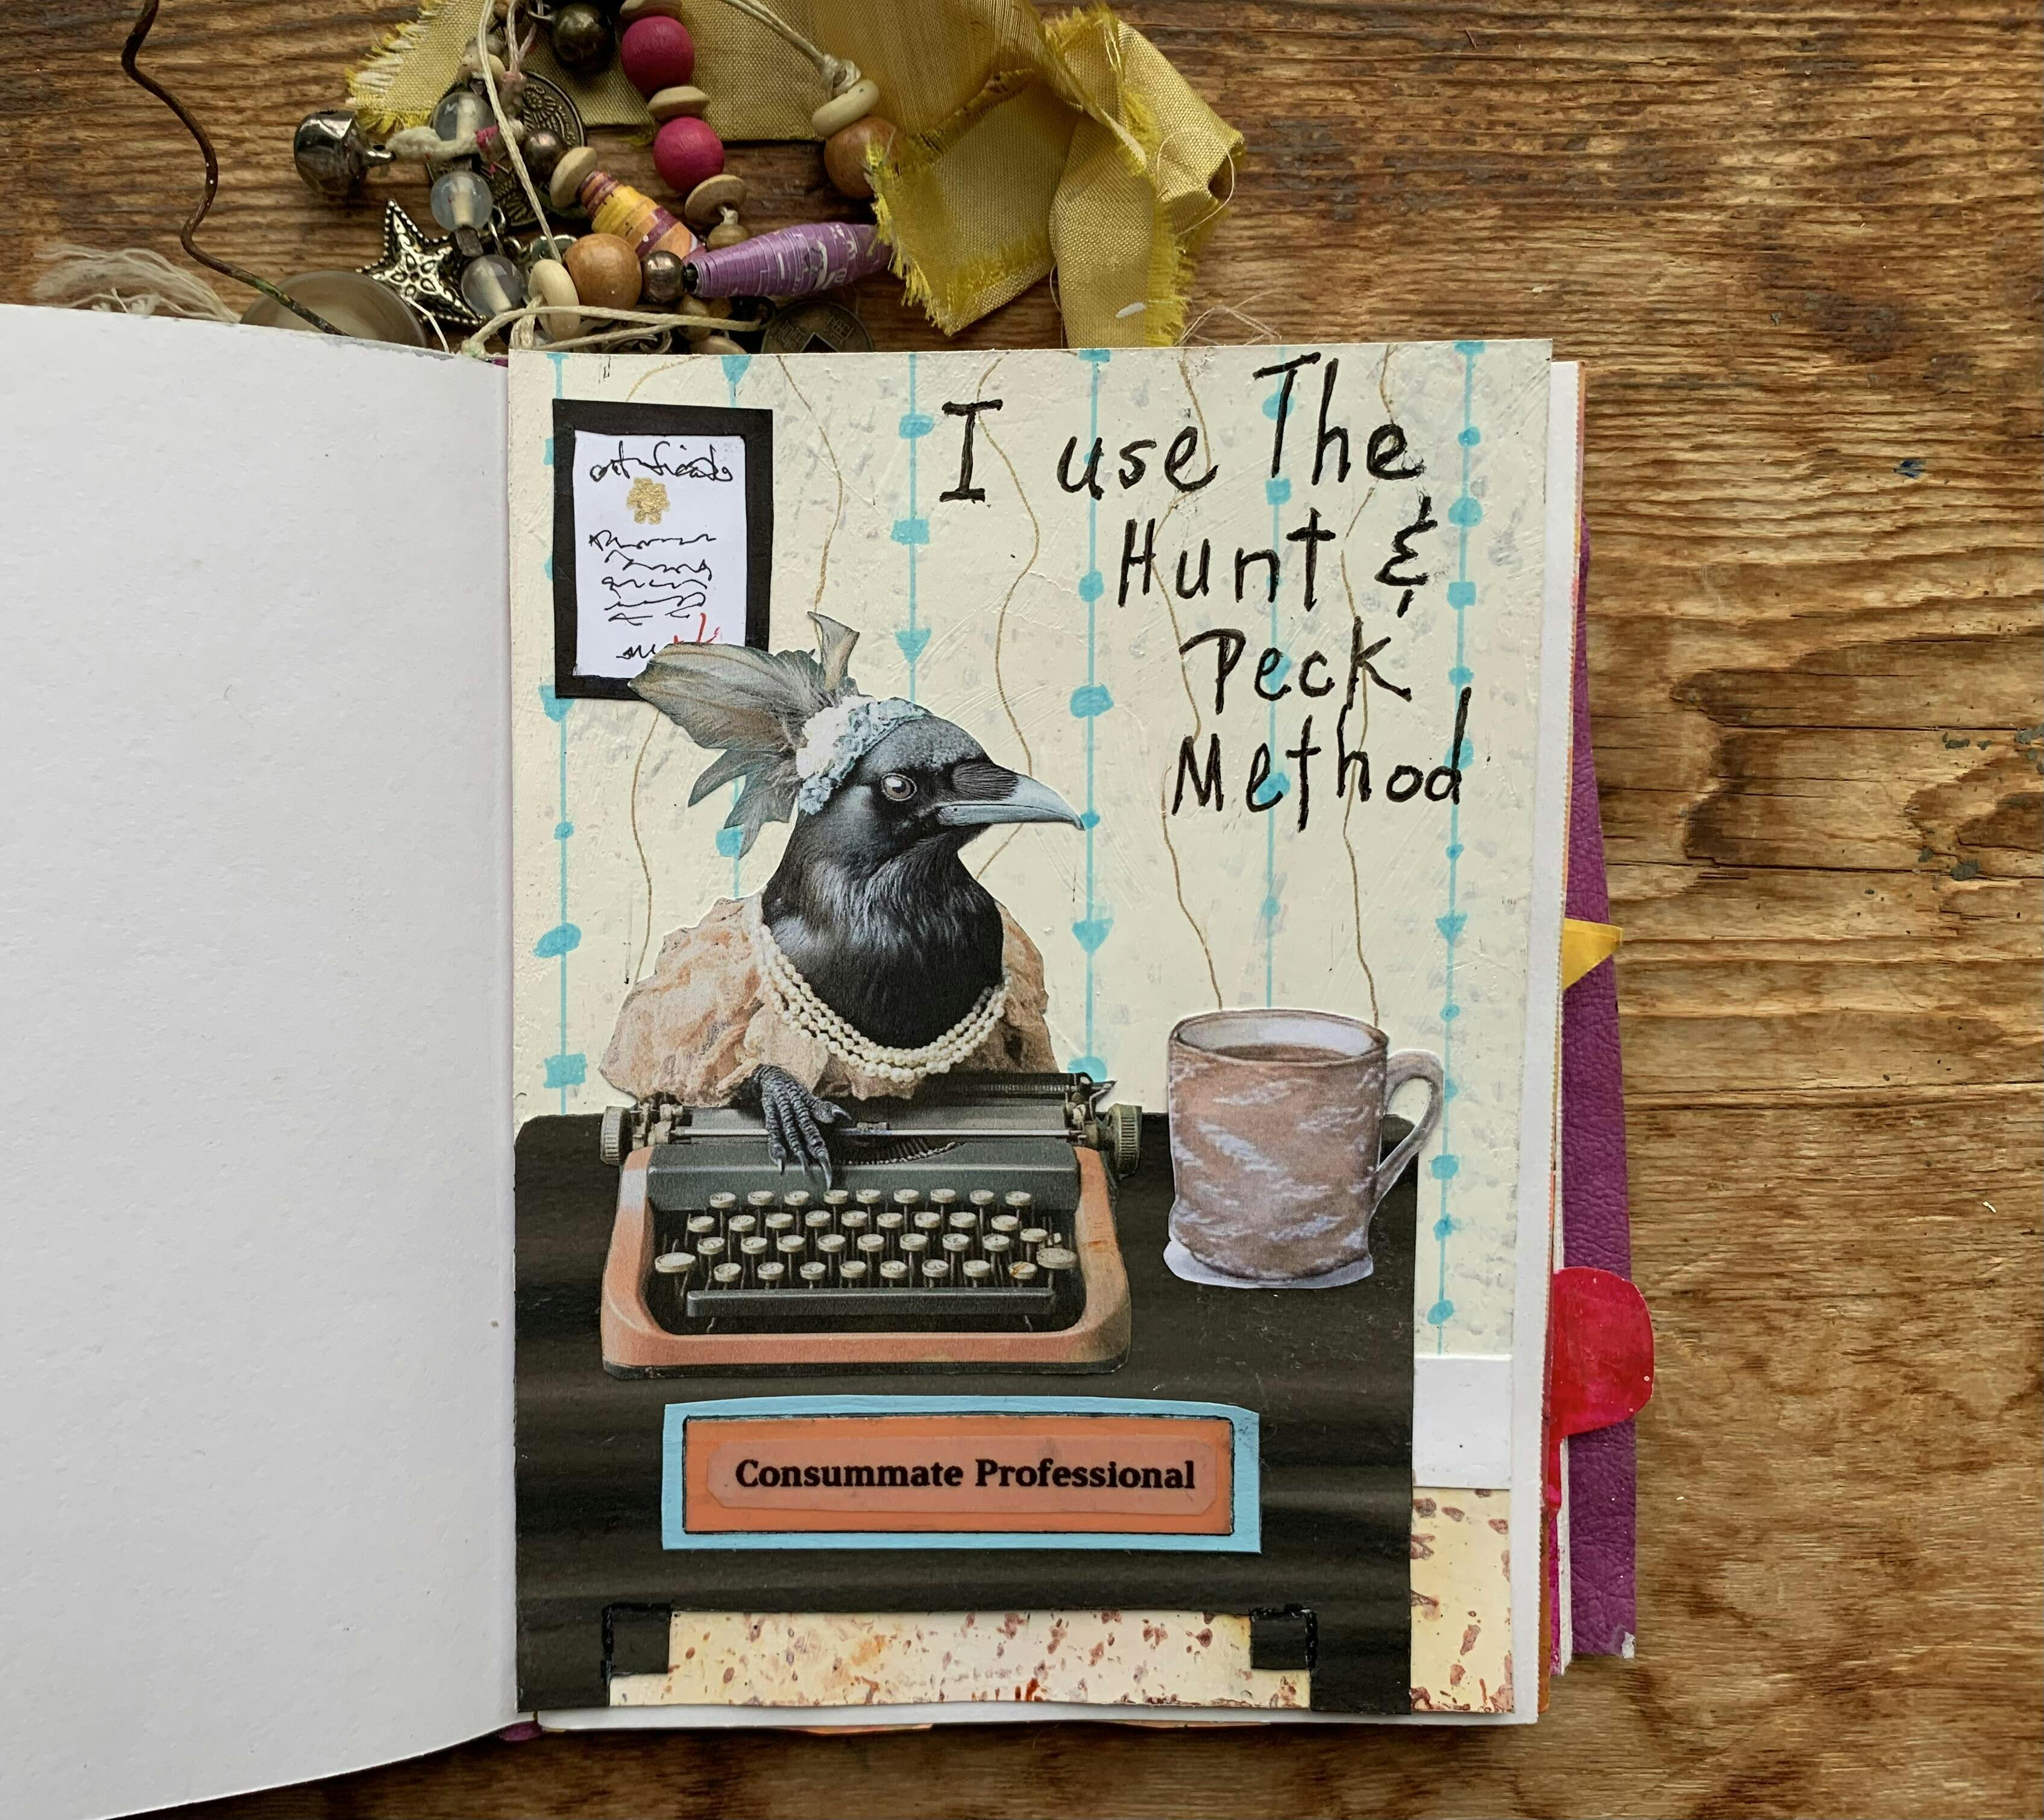 I use The
Hunt &
Peck
Method
Consummate Professional